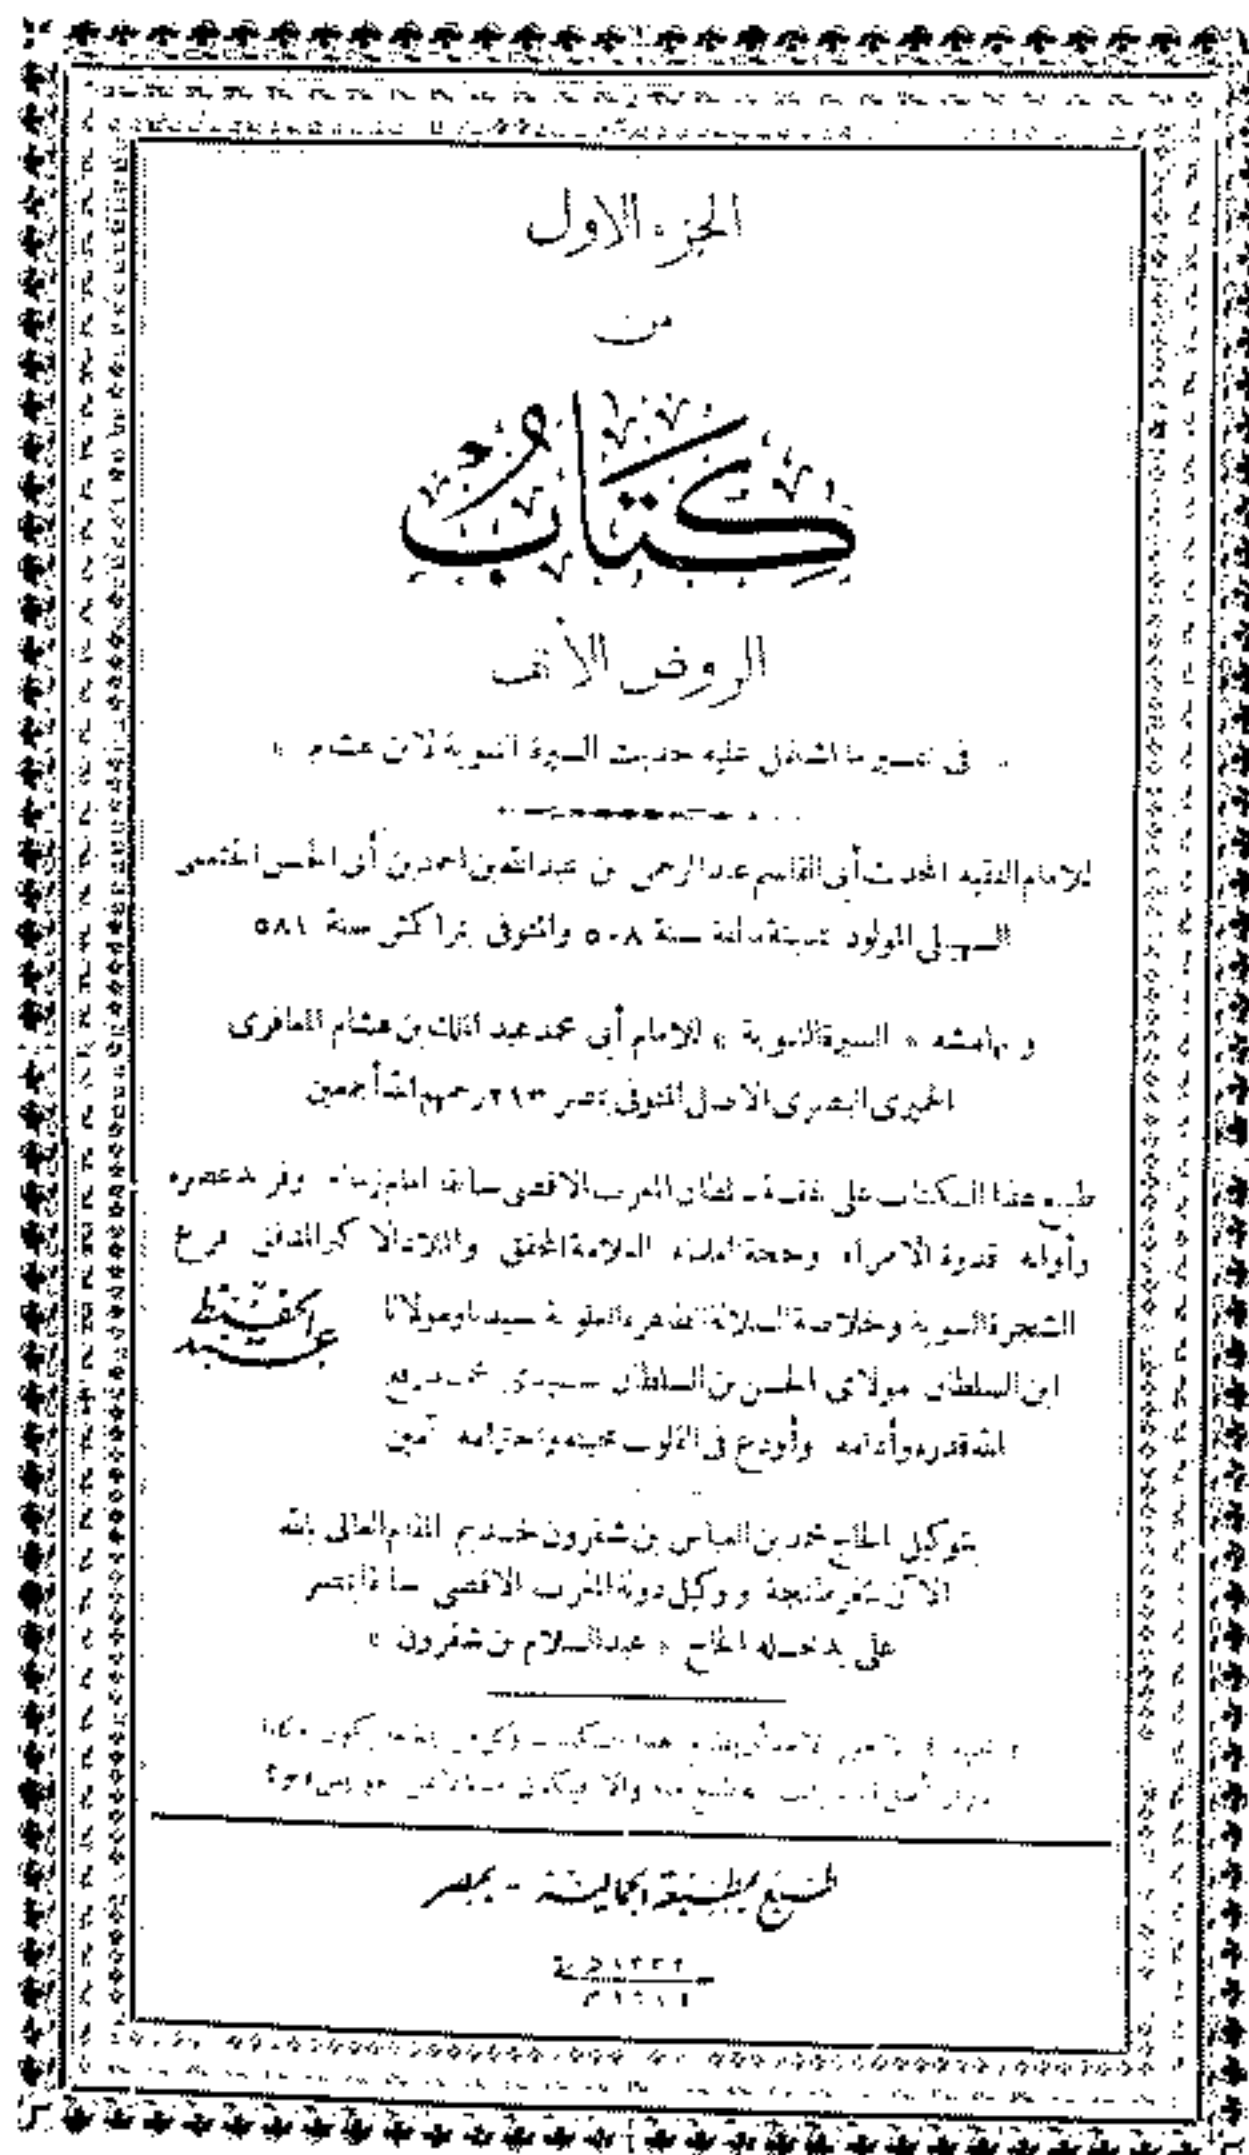 الجزء الاول
من
كِتَابُ
الروض الأنف
في تفسير ما اشتمل عليه حديث السيرة النبوية لابن هشام »
للامام الفقيه المحدث أبي القاسم عبد الرحمن بن عبد الله بن احمد بن أبي الحسن الخثعمي
السهيلي المولود بمدينة مالقة سنة ٥٠٨ والمتوفى بمراكش سنة ٥٨١
وبهامشه « السيرة النبوية » للامام أبي محمد عبد الملك بن هشام المعافري
الحميري البصري الاصل المتوفى بمصر ٢١٣ رحمهم الله أجمعين
طبع هذا الكتاب على نفقة سلطان المغرب الاقصى سابقا امام زمانه وفريد عصره
وأوانه قدوة الامراء وحجة العلماء العلامة المحقق والملاذ الاكبر المدقق فرع
الشجرة النبوية وخلاصة السلالة الطاهرة العلوية سيدنا ومولانا
عبد الحفيظ
ابن السلطان مولاي الحسن بن السلطان سيدي محمد رفع
الله قدره وأدامه وأودع في القلوب محبته واحترامه آمين
بتوكيل الحاج محمد بن العباس بن شقرون خديم المقام العالي بالله
الآن بثغر طنجة ووكيل دولة المغرب الاقصى سابقا بمصر
على يد نجله الحاج « عبد السلام بن شقرون »
هذا يكون
والا فيكون
طبع بالمطبعة الجمالية - بمصر
١٣٣٢ هـ
١٩١٤ م